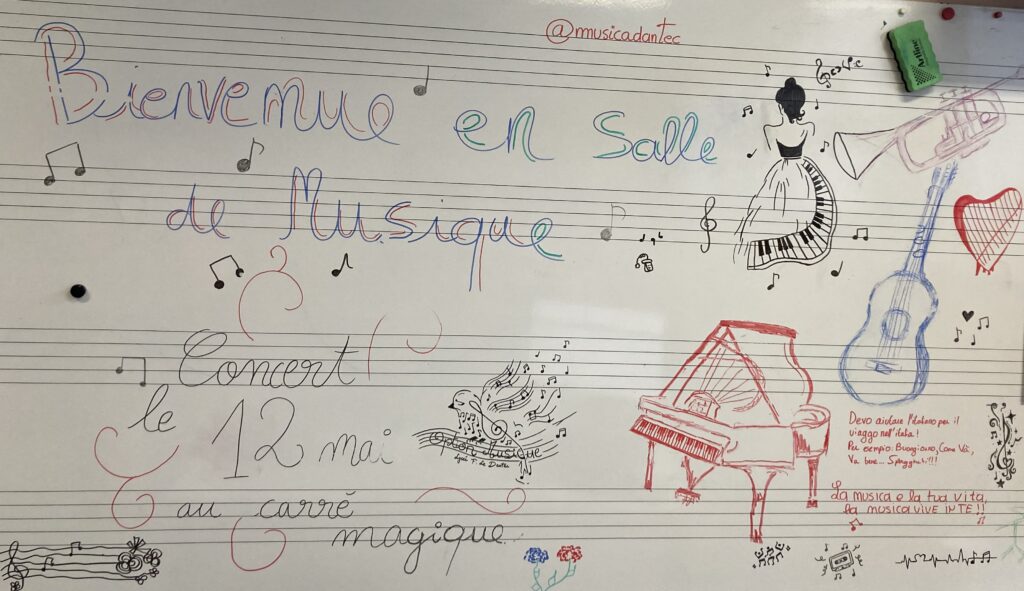 @musicadantec
Bienvenue en Salle
de Musique
Artline
Love
Concert
le 12 mai
au carré
magique
option Musique
Lycée F. Le Dantec
Devo aiutare l'italiano per il
viaggo nell'italia!
Per esempio: Buongiorno, Come Vai,
Va bene... Spagghetti!!!
La musica e la tua vita,
la musica vive in te!!